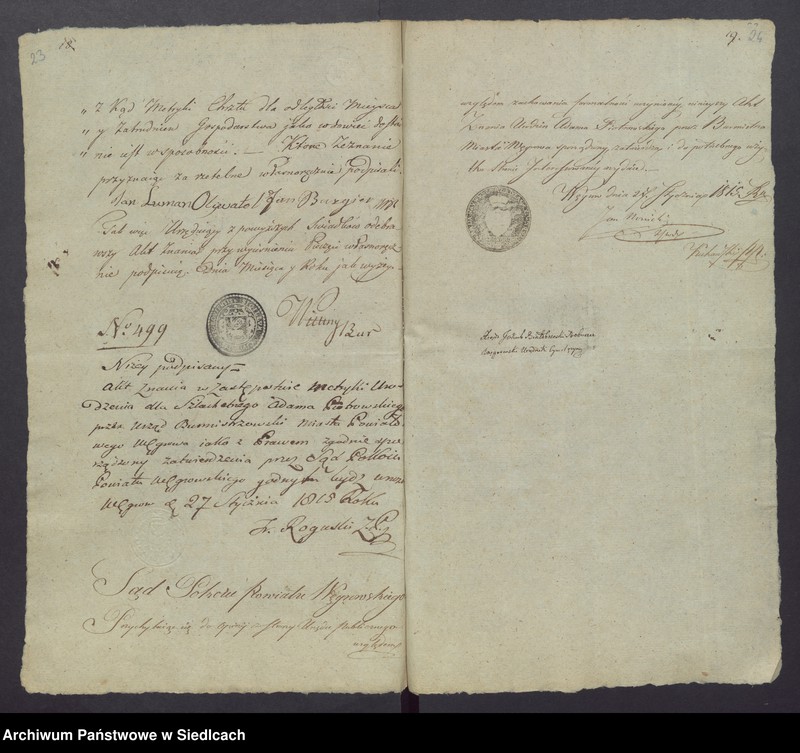 23
„ z Kąd Metryki Chrztu dla odległości Mieysca
„ y zatrudnien Gospodarstwa jako wdowiec dosta
„ nie iest w sposobności. — Ktore Zeznanie
przyznaiąc za rzetelne własnoręcznie podpisali.
Jan Luman Olgwato / Jan Burgier
Tak więc Urzędujący z powyższych Swiadków odebra
wszy Akt Znania przy wyciśnieniu Pieczęci własnoręcz
nie podpisuię. Dnia Miesiąca y Roku jak wyżey.
Wittny
Bur
No 499
Niżey podpisany
Akt Znania w Zastępstwie Metryki Uro-
dzenia dla Szlachetnego Adama Piotrowskiego
przez Urząd Burmistrzowski Miasta Powiato
wego Węgrowa jako z Prawem zgodnie spo
rządzony zatwierdzenia przez Sąd Pokoiu
Powiatu Węgrowskiego godnym bydź
Węgrow d. 27 Stycznia 1815 Roku
Fr. Roguski
Sąd Pokoiu Powiatu Węgrowskiego
Przychylaiąc się do Opinii
względem
9. 24
względem zachowania formalności ninieyszy Akt
Znania Urodzin Adama Piotrowskiego przez Burmistrza
Miasta Węgrowa sporządzony, zatwierdza i do potrzebnego uży
tku Stronie Interessowaney wydaie.
Węgrow dnia 28 Stycznia 1815
Archiwum Państwowe w Siedlcach